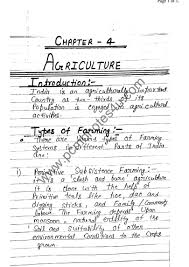 Page 1 of
CHAPTER - 4
AGRICULTURE
Introduction:-
India is an agriculturally important
Country as two-thirds of its
Population is engaged in agricultural
activities
Types of Farming:-
There are various types of Farming
Systems in different Parts of India
are:
i) Primitive Subsistence Farming:-
is a slash and burn agriculture
It is done with the help of
Primitive tools like hoe, dao and
digging sticks and family / Community
labour. The Farming depends Upon
monsoon, natural fertility of the
Soil and Suitability of other
environmental Conditions to the Crops
grown